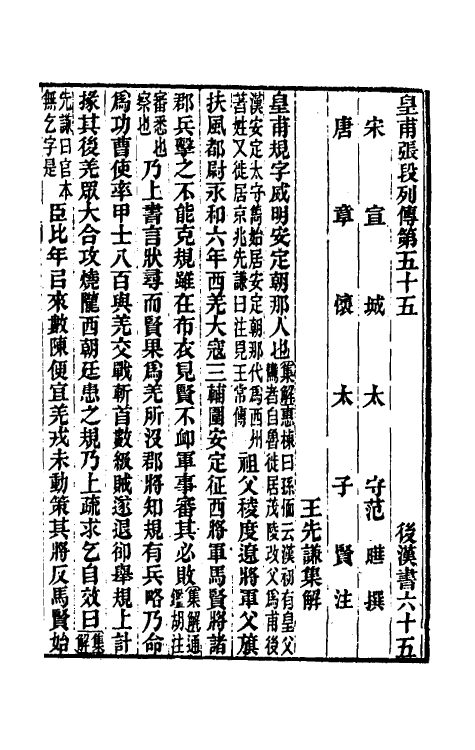 皇甫張段列傳第五十五　後漢書六十五
宋宣城太守范曄撰
唐章懷太子賢注
王先謙集解
皇甫規字威明安定朝那人也集解惠棟曰孫愐云漢初有皇父鸞者自魯徙居茂陵改父爲甫後漢安定太守雋始居安定朝那代爲西州著姓又徙居京兆先謙曰注見王常傳祖父稜度遼將軍父旗
扶風都尉永和六年西羌大寇三輔圍安定征西將軍馬賢將諸
郡兵擊之不能克規雖在布衣見賢不卹軍事審其必敗集解通鑑胡注審悉也察也乃上書言狀尋而賢果爲羌所沒郡將知規有兵略乃命
爲功曹使率甲士八百與羌交戰斬首數級賊遂退卻舉規上計
掾其後羌眾大合攻燒隴西朝廷患之規乃上疏求乞自效曰集解先謙曰官本無乞字是
臣比年㠯來數陳便宜羌戎未動策其將反馬賢始